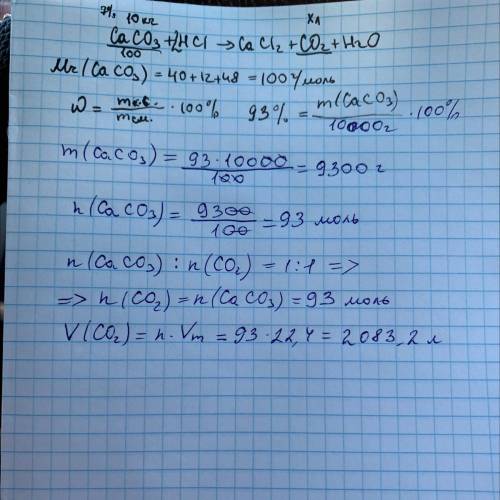 7% 10 кг хл
CaCO3 + 2HCl → CaCl2 + CO2 + H2O
100
Mr(CaCO3) = 40 + 12 + 48 = 100 г/моль
ω = mкв. / mсм. · 100% 93% = m(CaCO3) / 10000г · 100%
m(CaCO3) = 93 · 10000 / 100 = 9300 г
n(CaCO3) = 9300 / 100 = 93 моль
n(CaCO3) : n(CO2) = 1:1 =>
=> n(CO2) = n(CaCO3) = 93 моль
V(CO2) = n · Vm = 93 · 22,4 = 2083,2 л